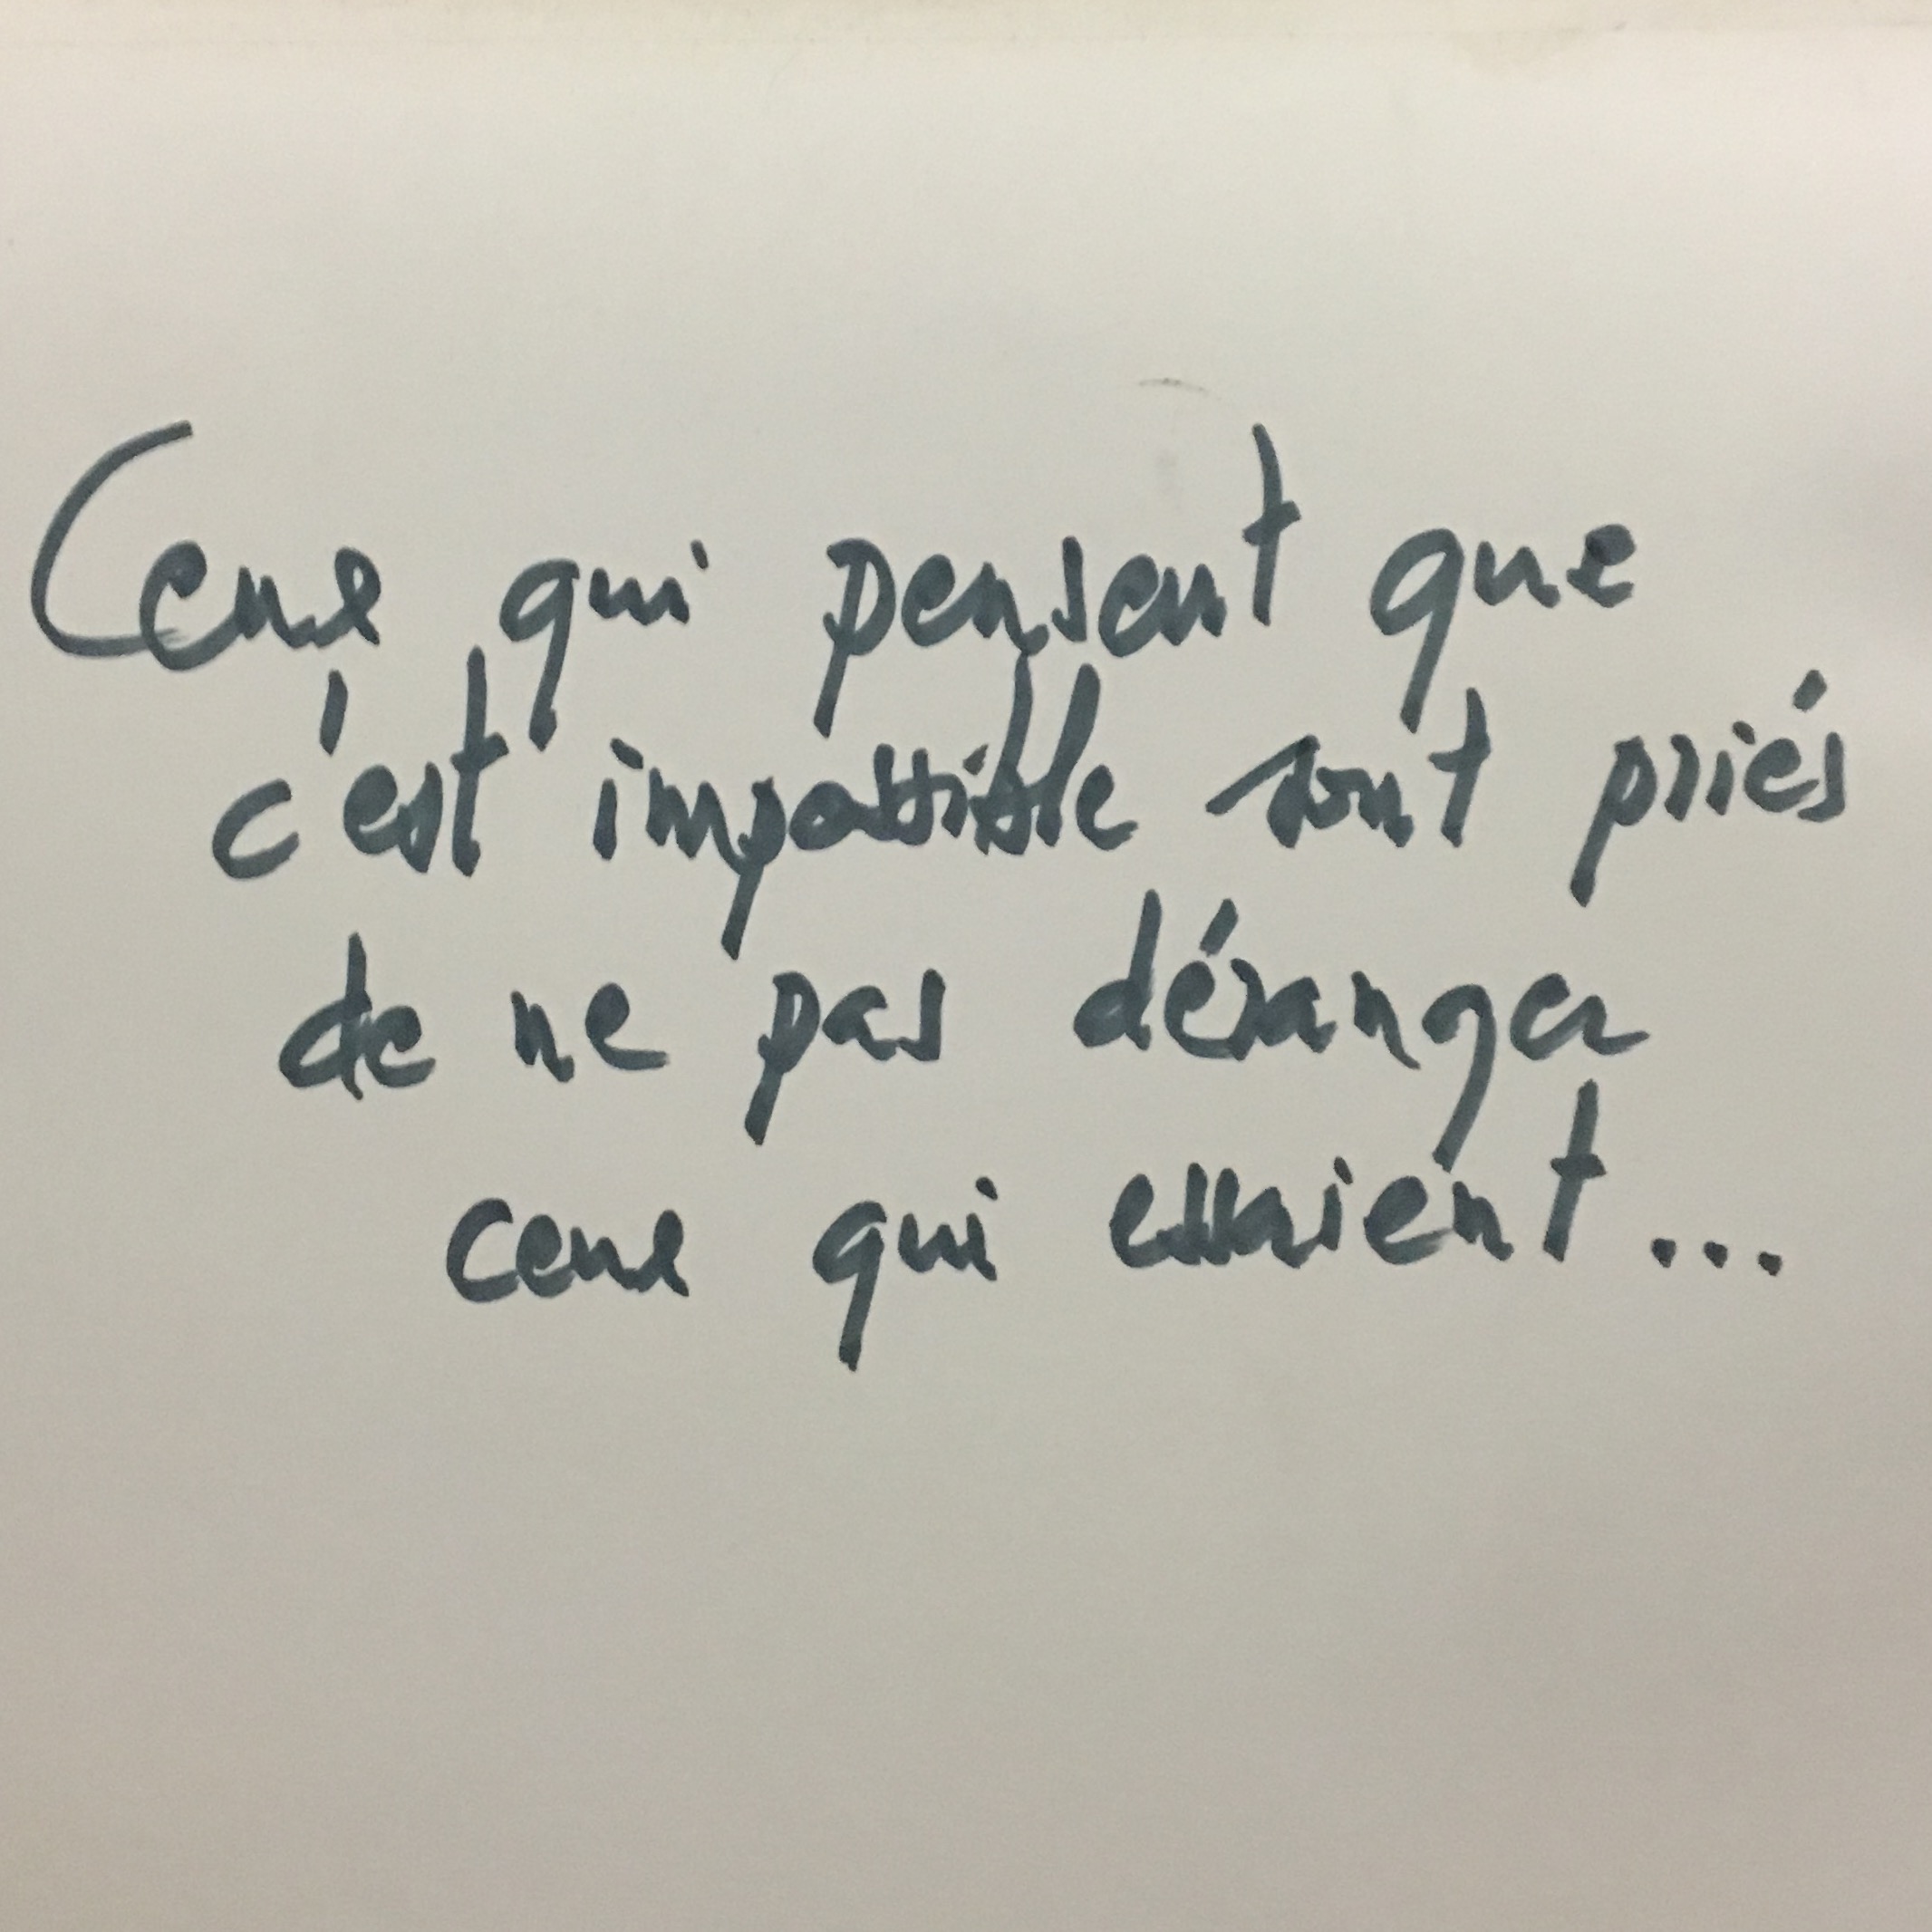 Ceux qui pensent que
c'est impossible sont priés
de ne pas déranger
ceux qui essaient...